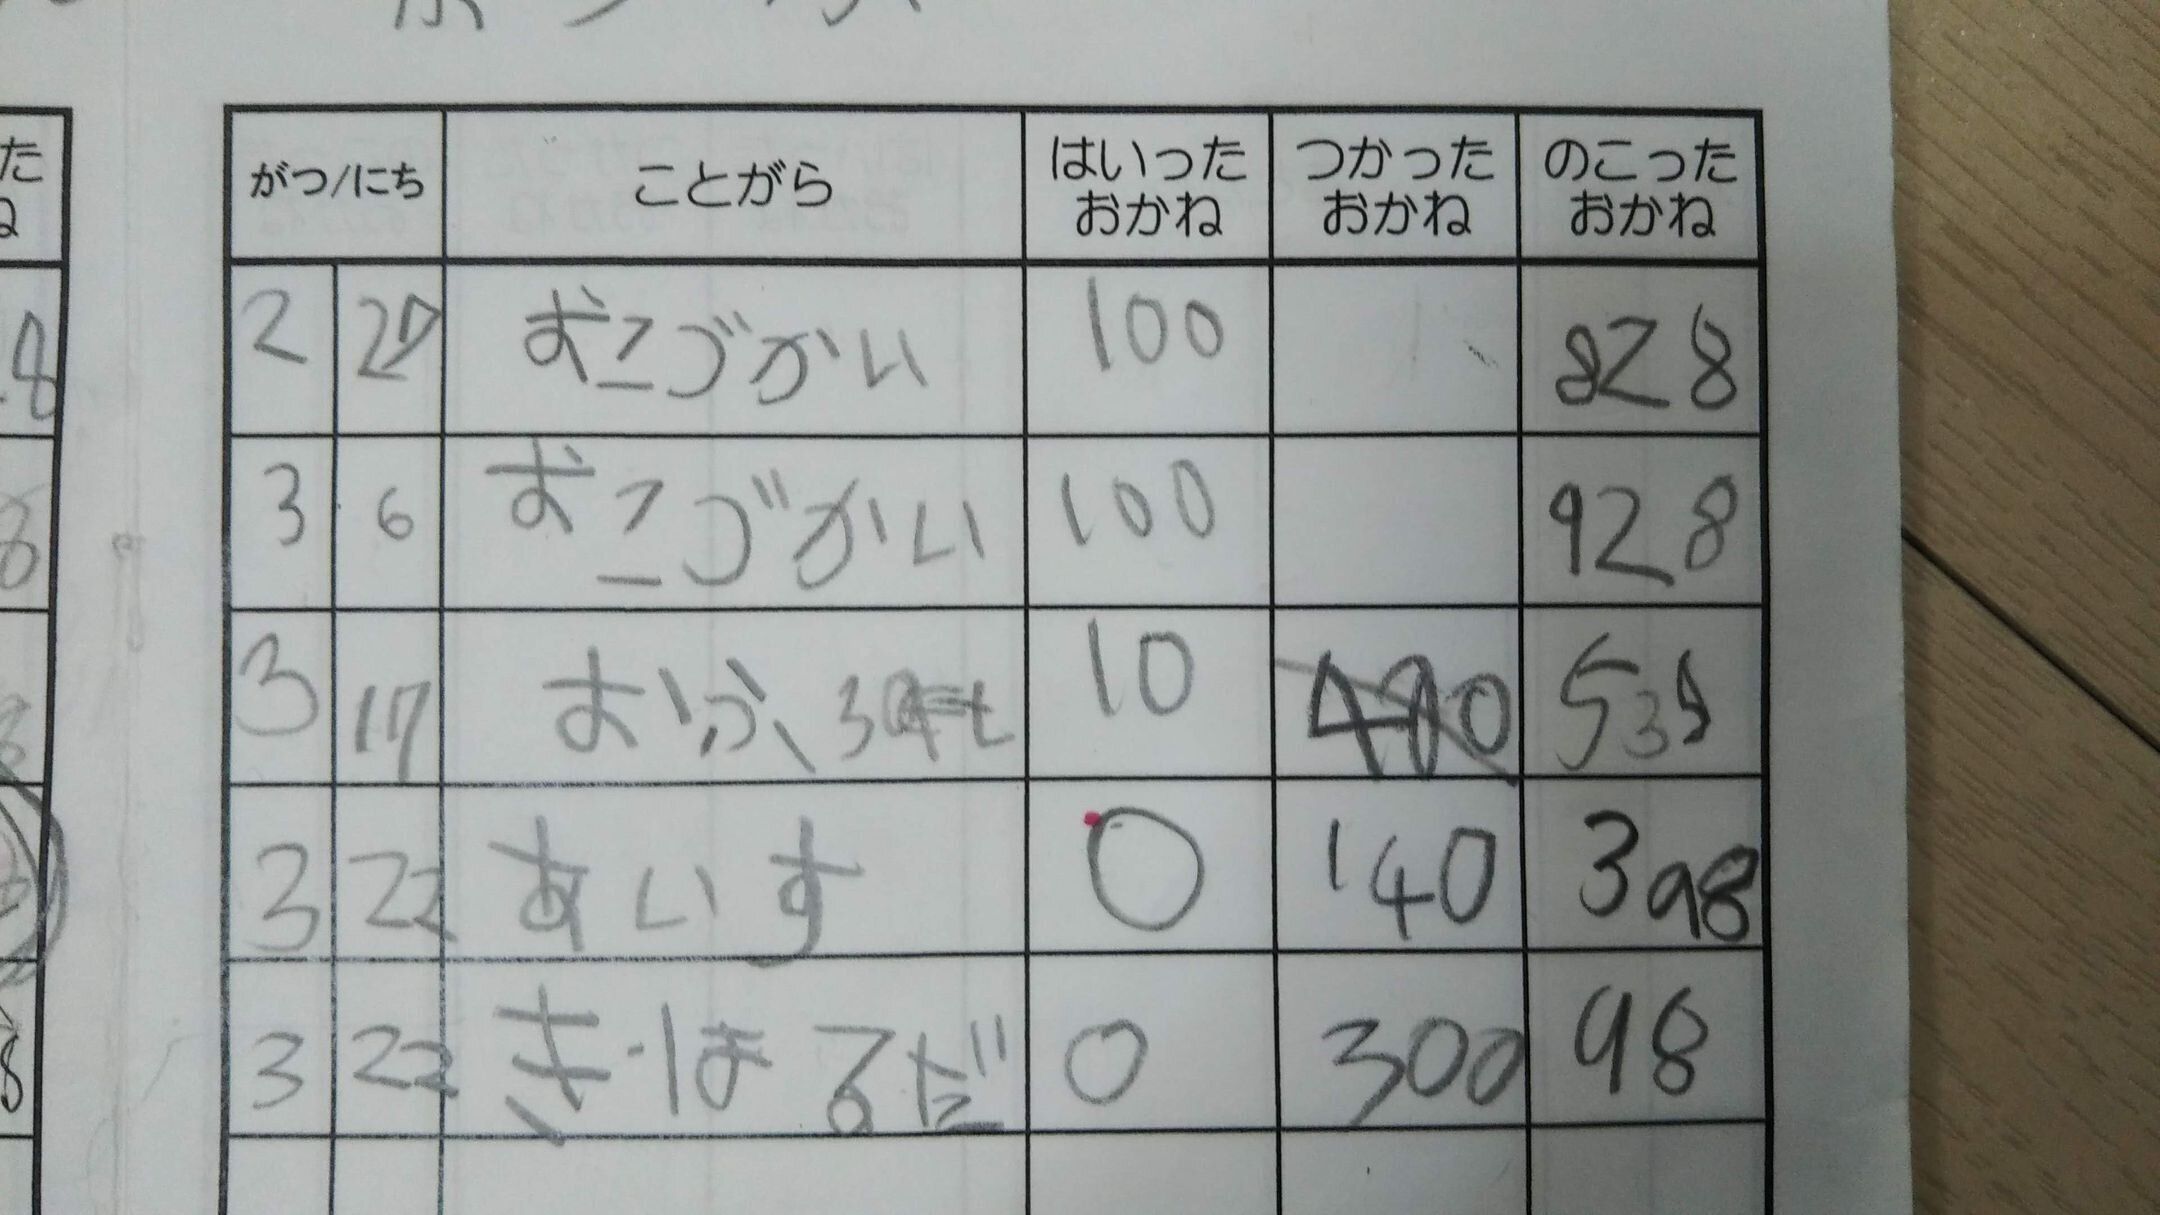 がつ/にち ことがら はいった おかね つかった おかね のこった おかね
2 27 おこづかい 100 828
3 6 おこづかい 100 928
3 17 10
3 22 あいす 0 140 398
3 22 きーほるだ 0 300 98